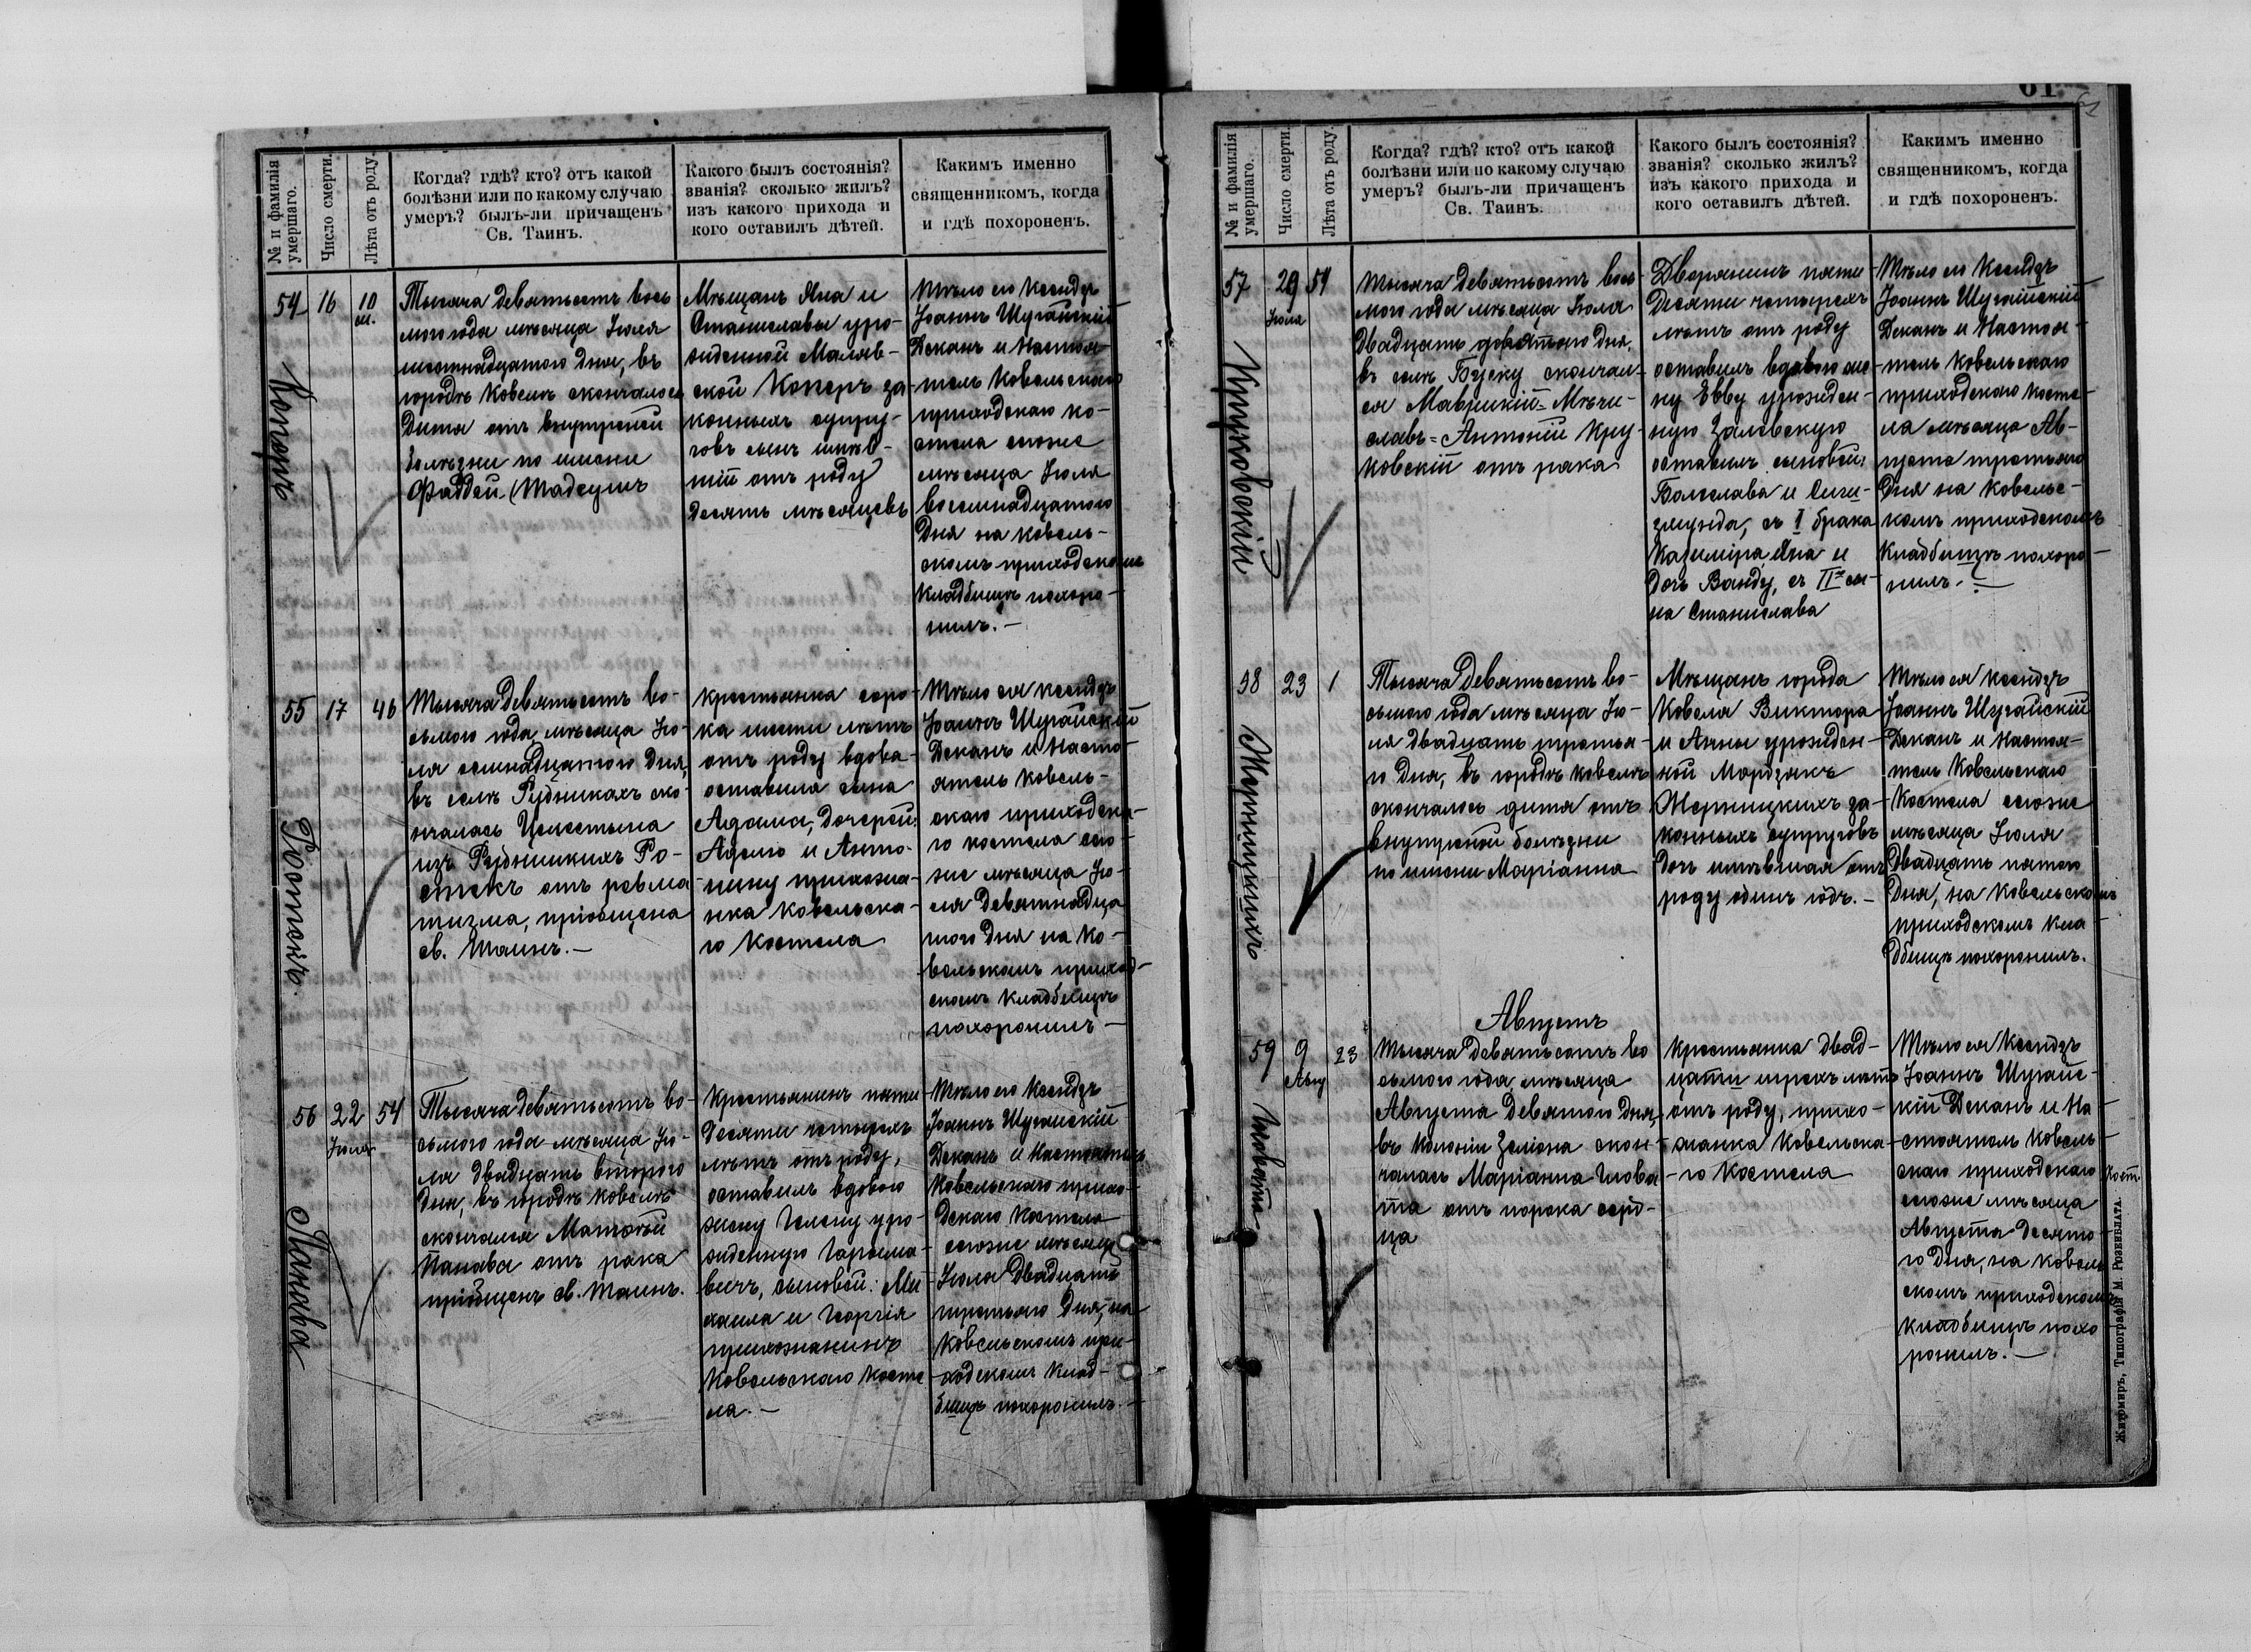 № и фамилія
умершаго.
Число смерти.
Лѣта отъ роду.
Когда? гдѣ? кто? отъ какой
болѣзни или по какому случаю
умеръ? былъ-ли причащенъ
Св. Таинъ.
Какого былъ состоянія?
званія? сколько жилъ?
изъ какого прихода и
кого оставилъ дѣтей.
Какимъ именно
священникомъ, когда
и гдѣ похороненъ.
54
Коперъ
16
10
м.
Тысяча девятьсотъ вось
мого года мѣсяца Іюля
шестнадцатого дня, въ
городѣ Ковелѣ скончалось
дитя отъ внутреней
болѣзни по имени
Фаддей (Тадеушъ
Мѣщанъ Яна и
Станиславы уро-
жденной Маляв-
ской Коперъ за-
конныхъ супру-
говъ сынъ имѣв-
шій отъ роду
десять мѣсяцевъ
Тѣло его Ксендзъ
Іоаннъ Шугайскій
Деканъ и Настоя-
тель Ковельскаго
приходскаго ко-
стела сегоже
мѣсяца Іюля
восемнадцатого
дня на Ковель-
скомъ приходскомъ
кладбищѣ похоро-
нилъ.-
55
Ростекъ.
17
46
Тысяча девятьсотъ во-
сьмого года мѣсяца Ію-
ля семнадцатого дня,
въ селѣ Рудникахъ ско-
нчалась Целестына
изъ Рудницкихъ Ро-
стекъ отъ ревма
тизма, пріобщена
св. Таинъ.-
крестьянка соро-
ка шести лѣтъ
отъ роду вдова
оставила сына
Адама, дочерей:
Аделю и Анто-
нину прихожа-
нка Ковельска-
го Костела
Тѣло ея ксендзъ
Іоаннъ Шугайскій
Деканъ и Насто-
ятель Ковель-
скаго приходска-
го костела сего-
же мѣсяца Ію-
ля девятнадца
того дня на Ко-
вельскомъ приход-
скомъ кладбищѣ
похоронилъ-
56
Панава
22
Іюля
54
Тысяча девятьсотъ во-
сьмого года мѣсяца Ію-
ля двадцать второго
дня, въ городѣ Ковелѣ
скончался Матѳей
Панава отъ рака
пріобщенъ св. Таинъ.
Крестьянинъ пяти
десяти четырехъ
лѣтъ отъ роду,
оставилъ вдовою
жену Гелену уро-
жденную Гарасима-
вичъ, сыновей: Ми
хаила и Георгія
прихожанинъ
Ковельскаго косте
ла.-
Тѣло его Ксендзъ
Іоаннъ Шугайскій
Деканъ и Настоятель
Ковельскаго прихо-
дскаго Костела
сегоже мѣсяца
Іюля двадцать
третьяго дня, на
Ковельскомъ при-
ходскомъ клад-
бищѣ похоронилъ.-
61
№ и фамилія
умершаго.
Число смерти.
Лѣта отъ роду.
Когда? гдѣ? кто? отъ какой
болѣзни или по какому случаю
умеръ? былъ-ли причащенъ
Св. Таинъ.
Какого былъ состоянія?
званія? сколько жилъ?
изъ какого прихода и
кого оставилъ дѣтей.
Какимъ именно
священникомъ, когда
и гдѣ похороненъ.
57
Круковскій
29
Іюля
54
Тысяча девятьсотъ вось
мого года мѣсяца Іюля
двадцать девятаго дня,
въ селѣ Буску скончал-
ся Маврикій-Мѣчи-
славъ-Антоній Кру
ковскій отъ рака
Дворянинъ пяти
десяти четырехъ
лѣтъ отъ роду
оставилъ вдовою же-
ну Евву урожден-
ную Залевскую
оставилъ сыновей:
Болеслава и Сиги-
змунда, съ I брака
Казиміра, Яна и
дочь Ванду, съ IIго сы-
на Станислава
Тѣло его Ксендзъ
Іоаннъ Шугайскій
Деканъ и Настоя-
тель Ковельскаго
приходскаго косте-
ла мѣсяца Ав-
густа третьяго
дня на Ковельс-
комъ приходскомъ
кладбищѣ похоро-
нилъ.-
58
Жерницкихъ
23
1
Тысяча девятьсотъ во-
сьмого года мѣсяца Ію-
ля двадцать третья-
го дня, въ городѣ Ковелѣ
скончалось дитя отъ
внутреной болѣзни
по имени Маріанна
Мѣщанъ города
Ковеля Виктора
и Анны урожден-
ной Мардзякъ
Жерницкихъ за-
конныхъ супруговъ
дочь имѣвшая отъ
роду одинъ годъ.-
Тѣло ея Ксендзъ
Іоаннъ Шугайскій
Деканъ и Настоя-
тель Ковельскаго
Костела сегоже
мѣсяца Іюля
двадцать пятого
дня, на Ковельскомъ
приходскомъ кла-
дбищѣ похоронилъ.
Августъ
59
Гловата
9
Авгу
23
Тысяча девятьсотъ во
сьмого года, мѣсяца
Августа девятого дня,
въ Колоніи Зеліона скон-
чалась Маріанна Глова
та отъ порока серд-
ца
Крестьянка двад-
цати трехъ лѣтъ
отъ роду, прихо-
жанка Ковельска-
го Костела
Тѣло ея Ксендзъ
Іоаннъ Шугайс-
кій Деканъ и На-
стоятель Ковель
скаго приходскаго кост.
сегоже мѣсяца
Августа десято-
го дня, на Ковель
скомъ приходскомъ
кладбищѣ похо
ронилъ.-
Житомиръ, Типографія М. Розенблата.